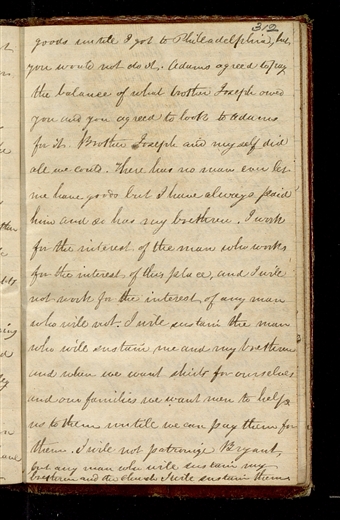 312
goods untill I got to Philadelphia, but
you would not do it. Adams agreed to pay
the balance of what brother Joseph owed
you and you agreed to look to Adams
for it. Brother Joseph and myself did
all we could. There has no man ever let
me have goods but I have always paid
him and so has my bretheren. I work
for the interest of the man who works
for the interest of this place, and I will
not work for the interest of any man
who will not. I will sustain the man
who will sustain me and my bretheren
and when we want shirts for ourselves
and our families we want men to help
us to them untill we can pay them for
them. I will not patronize Bryant,
but any man who will sustain my
bretheren and the church I will sustain them